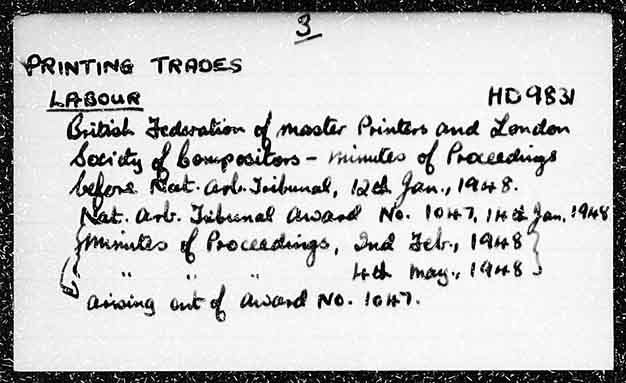 3
PRINTING TRADES
LABOUR HD9831
British Federation of Master Printers and London
Society of Compositors - Minutes of Proceedings
before Nat. Arb. Tribunal, 12th Jan., 1948.
Nat. Arb. Tribunal Award No. 1047, 14th Jan, 1948
{Minutes of Proceedings, 2nd Feb., 1948}
{ " " " 4th May., 1948}
arising out of Award No. 1047.